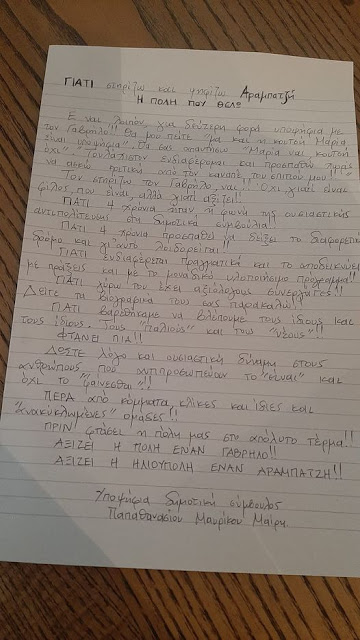 ΓΙΑΤΙ στηρίζω και ψηφίζω Αραμπατζή
Η ΠΟΛΗ ΠΟΥ ΘΕΛΩ
Ε ναι, λοιπόν, για δεύτερη φορά υποψήφια με
τον Γαβρήλο!! Θα μου πείτε "μα και η κουτσή Μαρία
είναι υποψήφια". Θα σας απαντήσω "Μαρία ναι, κουτσή
όχι". Τουλάχιστον ενδιαφέρομαι και προσπαθώ χωρίς
να ασκώ κριτική από τον καναπέ του σπιτιού μου!!
Τον στηρίζω τον Γαβρήλο, ναι!! Όχι γιατί είναι
φίλος, που είναι, αλλά γιατί αξίζει!!
ΓΙΑΤΙ 4 χρόνια ήταν η φωνή της ουσιαστικής
αντιπολίτευσης στα δημοτικά συμβούλια!!
ΓΙΑΤΙ 4 χρόνια προσπαθεί να δείξει το διαφορετικό
δρόμο και γι'αυτό λοιδορείται!!
ΓΙΑΤΙ ενδιαφέρεται πραγματικά και το αποδεικνύει
με πράξεις και με το μοναδικό υλοποιήσιμο πρόγραμμα!!
ΓΙΑΤΙ γύρω του έχει αξιόλογους συνεργάτες!!
Δείτε τα βιογραφικά τους σας παρακαλώ!!
ΓΙΑΤΙ βαρεθήκαμε να βλέπουμε τους ίδιους και
τους ίδιους. Τους "παλιούς" και τους "νέους"!!
ΦΤΑΝΕΙ ΠΙΑ!!
ΔΩΣΤΕ λόγο και ουσιαστική δύναμη στους
ανθρώπους που αντιπροσωπεύουν το "είναι" και
όχι το "φαίνεσθαι"!!
ΠΕΡΑ από κόμματα, κλίκες και ίδιες και
"ανακυκλωμένες" ομάδες!!
ΠΡΙΝ φτάσει η πόλη μας στο απόλυτο τέρμα!!
ΑΞΙΖΕΙ Η ΠΟΛΗ ΕΝΑΝ ΓΑΒΡΗΛΟ!!
ΑΞΙΖΕΙ Η ΗΛΙΟΥΠΟΛΗ ΕΝΑΝ ΑΡΑΜΠΑΤΖΗ!!
Υποψήφια δημοτική σύμβουλος
Παπαθανασίου Μαυρίκου Μαίρη